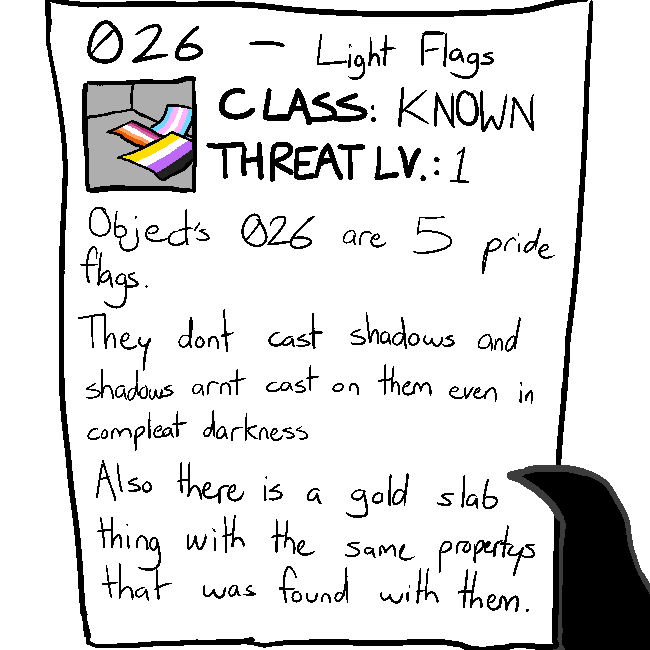 026 - Light Flags
CLASS: KNOWN
THREAT LV.: 1
Object's 026 are 5 pride
flags.
They dont cast shadows and
shadows arnt cast on them even in
compleat darkness
Also there is a gold slab
thing with the same propertys
that was found with them.